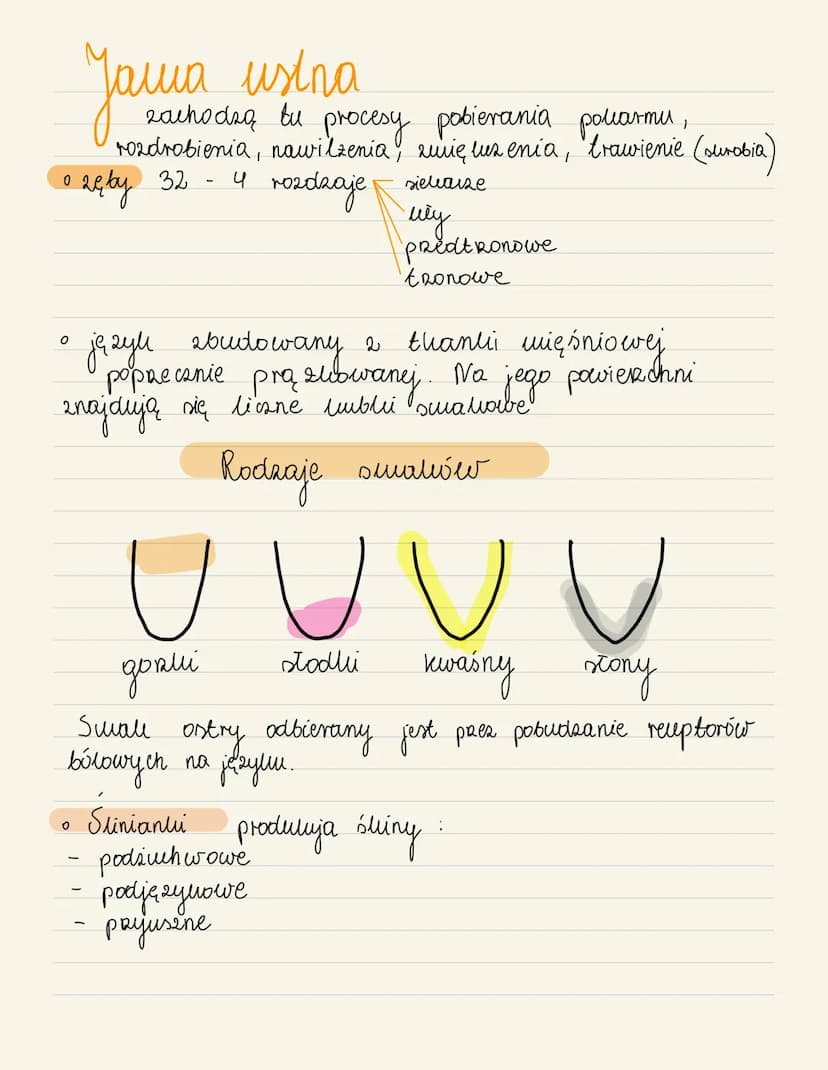 Jama ustna
zachodzą tu procesy pobierania pokarmu,
rozdrobienia, nawilżenia, zmiękczenia, trawienie (skrobia)
• zęby 32 - 4 rozdzaje siekacze
kły
przedtrzonowe
trzonowe
• język zbudowany z tkanki mięśniowej
poprzecznie prążkowanej. Na jego powierzchni
znajdują się liczne kubki smakowe
Rodzaje smaków
gorzki słodki kwaśny słony
Smak ostry odbierany jest przez pobudzanie receptorów
bólowych na języku.
• Ślinianki produkują śliny :
- podżuchwowe
- podjęzykowe
- przyuszne